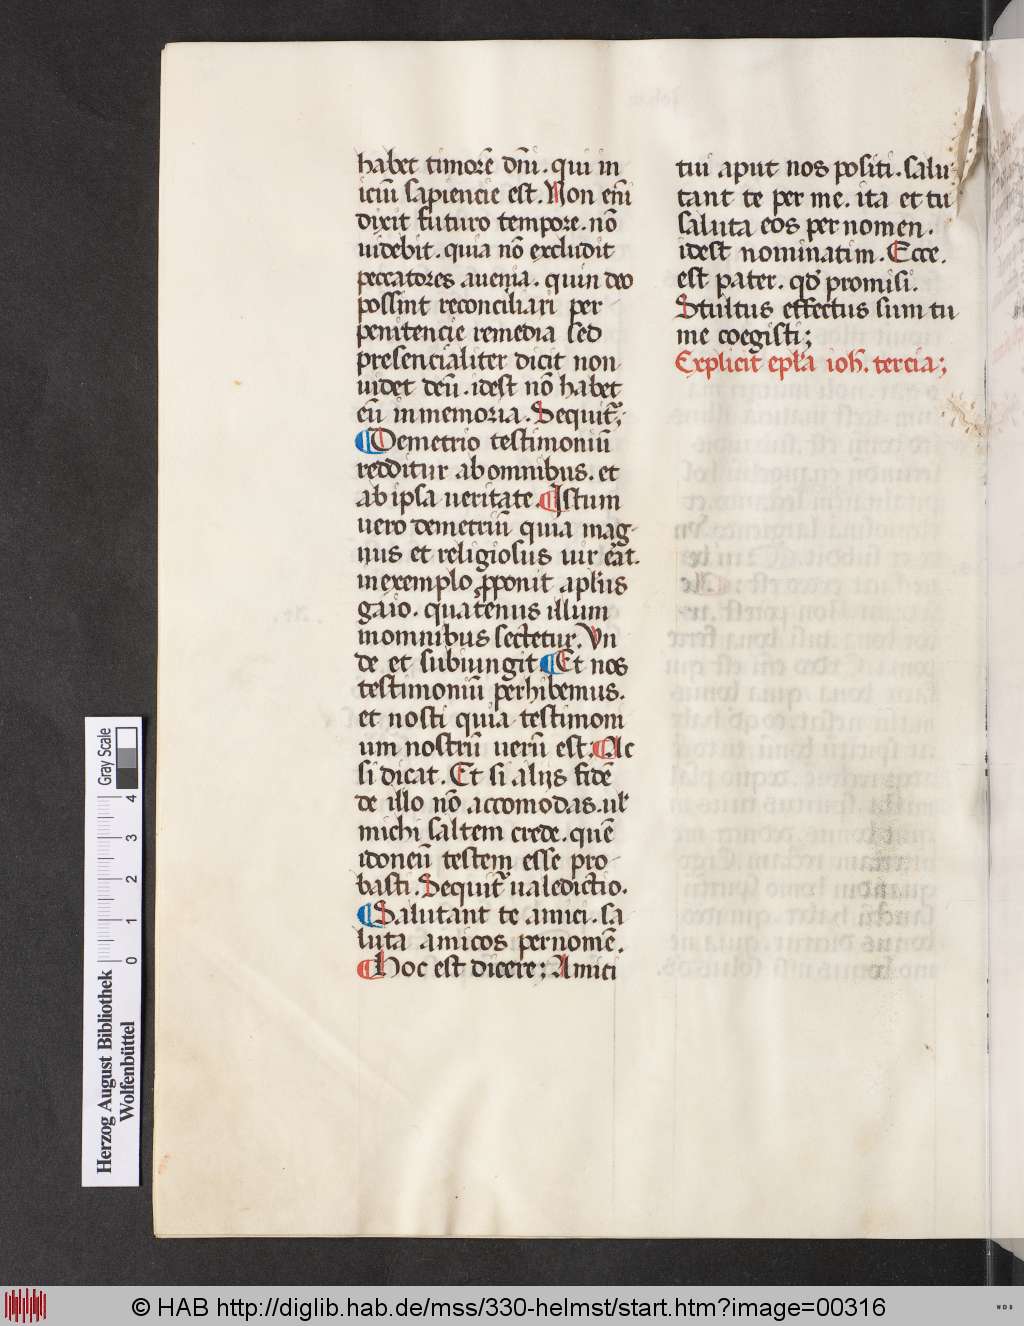 habet timorē dn̄i. qui in
iciū sapiencie est. Non em̄
dixit futuro tempore. nō
uidebit. quia nō excludit
peccatores auenia. quin deo
possint reconciliari per
penitencie remedia sed
presencialiter dicit non
uidet deū. idest nō habet
eū inmemoria. Sequit᷑;
¶Demetrio testimoniū
redditur abomnibus. et
abipsa ueritate. ¶Istum
uero demetriū quia mag-
nus et religiosus uir erat.
inexemplo ꝓponit apl'us
gaio. quatenus illum
inomnibus sectetur. Vn
de et subiungit ¶Et nos
testimoniū perhibemus.
et nosti quia testimoni
um nostrū uerū est: ¶Ac
si dicat. Et si alijs fidē
de illo nō accomodas. ul'
michi saltem crede. quē
idoneū testem esse pro-
basti. Sequit᷑ ualedictio.
¶Salutant te amici. sa
luta amicos pernomē.
¶Hoc est dicere; Amici
tui aput nos positi. salu-
tant te per me. ita et tu
saluta eos per nomen.
idest nominatim. Ecce.
est pater. qd̄ promisi.
Stultus effectus sum tu
me coegisti;
Explicit epl'a ioh̄. tercia;
Gray Scale
4
3
2
1
0
Herzog August Bibliothek
Wolfenbüttel
© HAB http://diglib.hab.de/mss/330-helmst/start.htm?image=00316